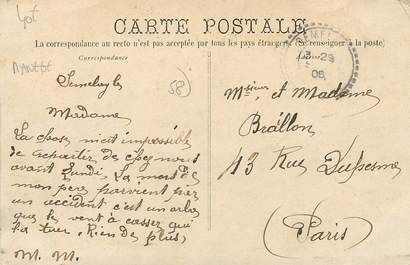 Lot
CARTE POSTALE
La correspondance au recto n'est pas acceptée par tous les pays étrangers (Se renseigner à la poste)
Correspondance
58
13-29
06
Semelay le
Madame
La chose m'est impossible
de repartir de chez nous
avant lundi. La mort de
mon père parvient par
un accident c'est un arbre
que le vent à casser qui
la tuer. Rien de plus,
M. M.
Msieur et Madame
Brâllon
43 Rue Dufresne
(Paris)